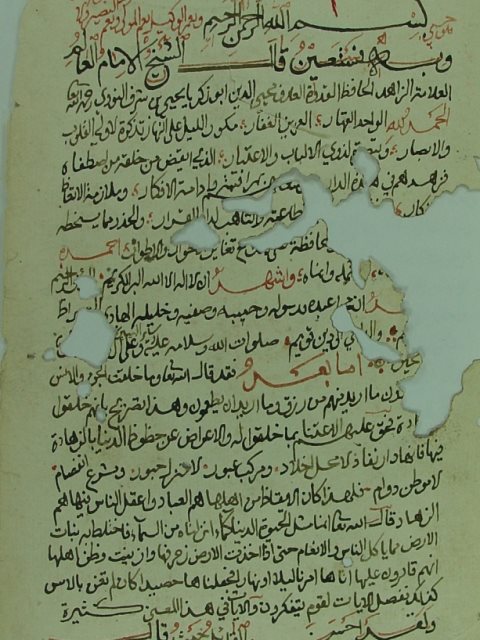 بسم الله الرحمن الرحيم
وبه نستعين قال الشيخ الامام العالم
العلامة الزاهد الحافظ محيي الدين ابو زكريا يحيى بن شرف النووي رحمه الله
الحمد لله الواحد القهار العزيز الغفار مكور الليل على النهار تذكرة لاولي القلوب
والابصار وتبصرة لذوي الالباب والاعتبار الذي ايقظ من خلقه من اصطفاه
فزهدهم في هذه الدار وادامة الافكار وملازمة الاتعاظ
طاعته والتاهب لدار القرار والحذر مما يسخطه
والمحافظة على ذلك مع تغاير الاحوال والاطوار احمده
واشهد ان لا اله الا الله البر الكريم
عبده ورسوله وحبيبه وصفيه وخليله الهادي الى صراط
دين قويم صلوات الله وسلامه عليه وعلى
اما بعد فقد قال الله تعالى وما خلقت الجن والانس
ما اريد منهم من رزق وما اريد ان يطعمون وهذا تصريح بانهم خلقوا
فحق عليهم الاعتناء بما خلقوا له والاعراض عن حظوظ الدنيا بالزهادة
فانها دار نفاد لا محل اخلاد ومركب عبور لا منزل حبور ومشرع انفصام
لا موطن دوام فلهذا كان الايقاظ من اهلها هم العباد واعقل الناس فيها هم
الزهاد قال الله تعالى انما مثل الحيوة الدنيا كماء انزلناه من السماء فاختلط به نبات
الارض مما ياكل الناس والانعام حتى اذا اخذت الارض زخرفها وازينت وظن اهلها
انهم قادرون عليها اتاها امرنا ليلا او نهارا فجعلناها حصيدا كان لم تغن بالامس
كذلك نفصل الايات لقوم يتفكرون والايات في هذا المعنى كثيرة
ولقد احسن القائل